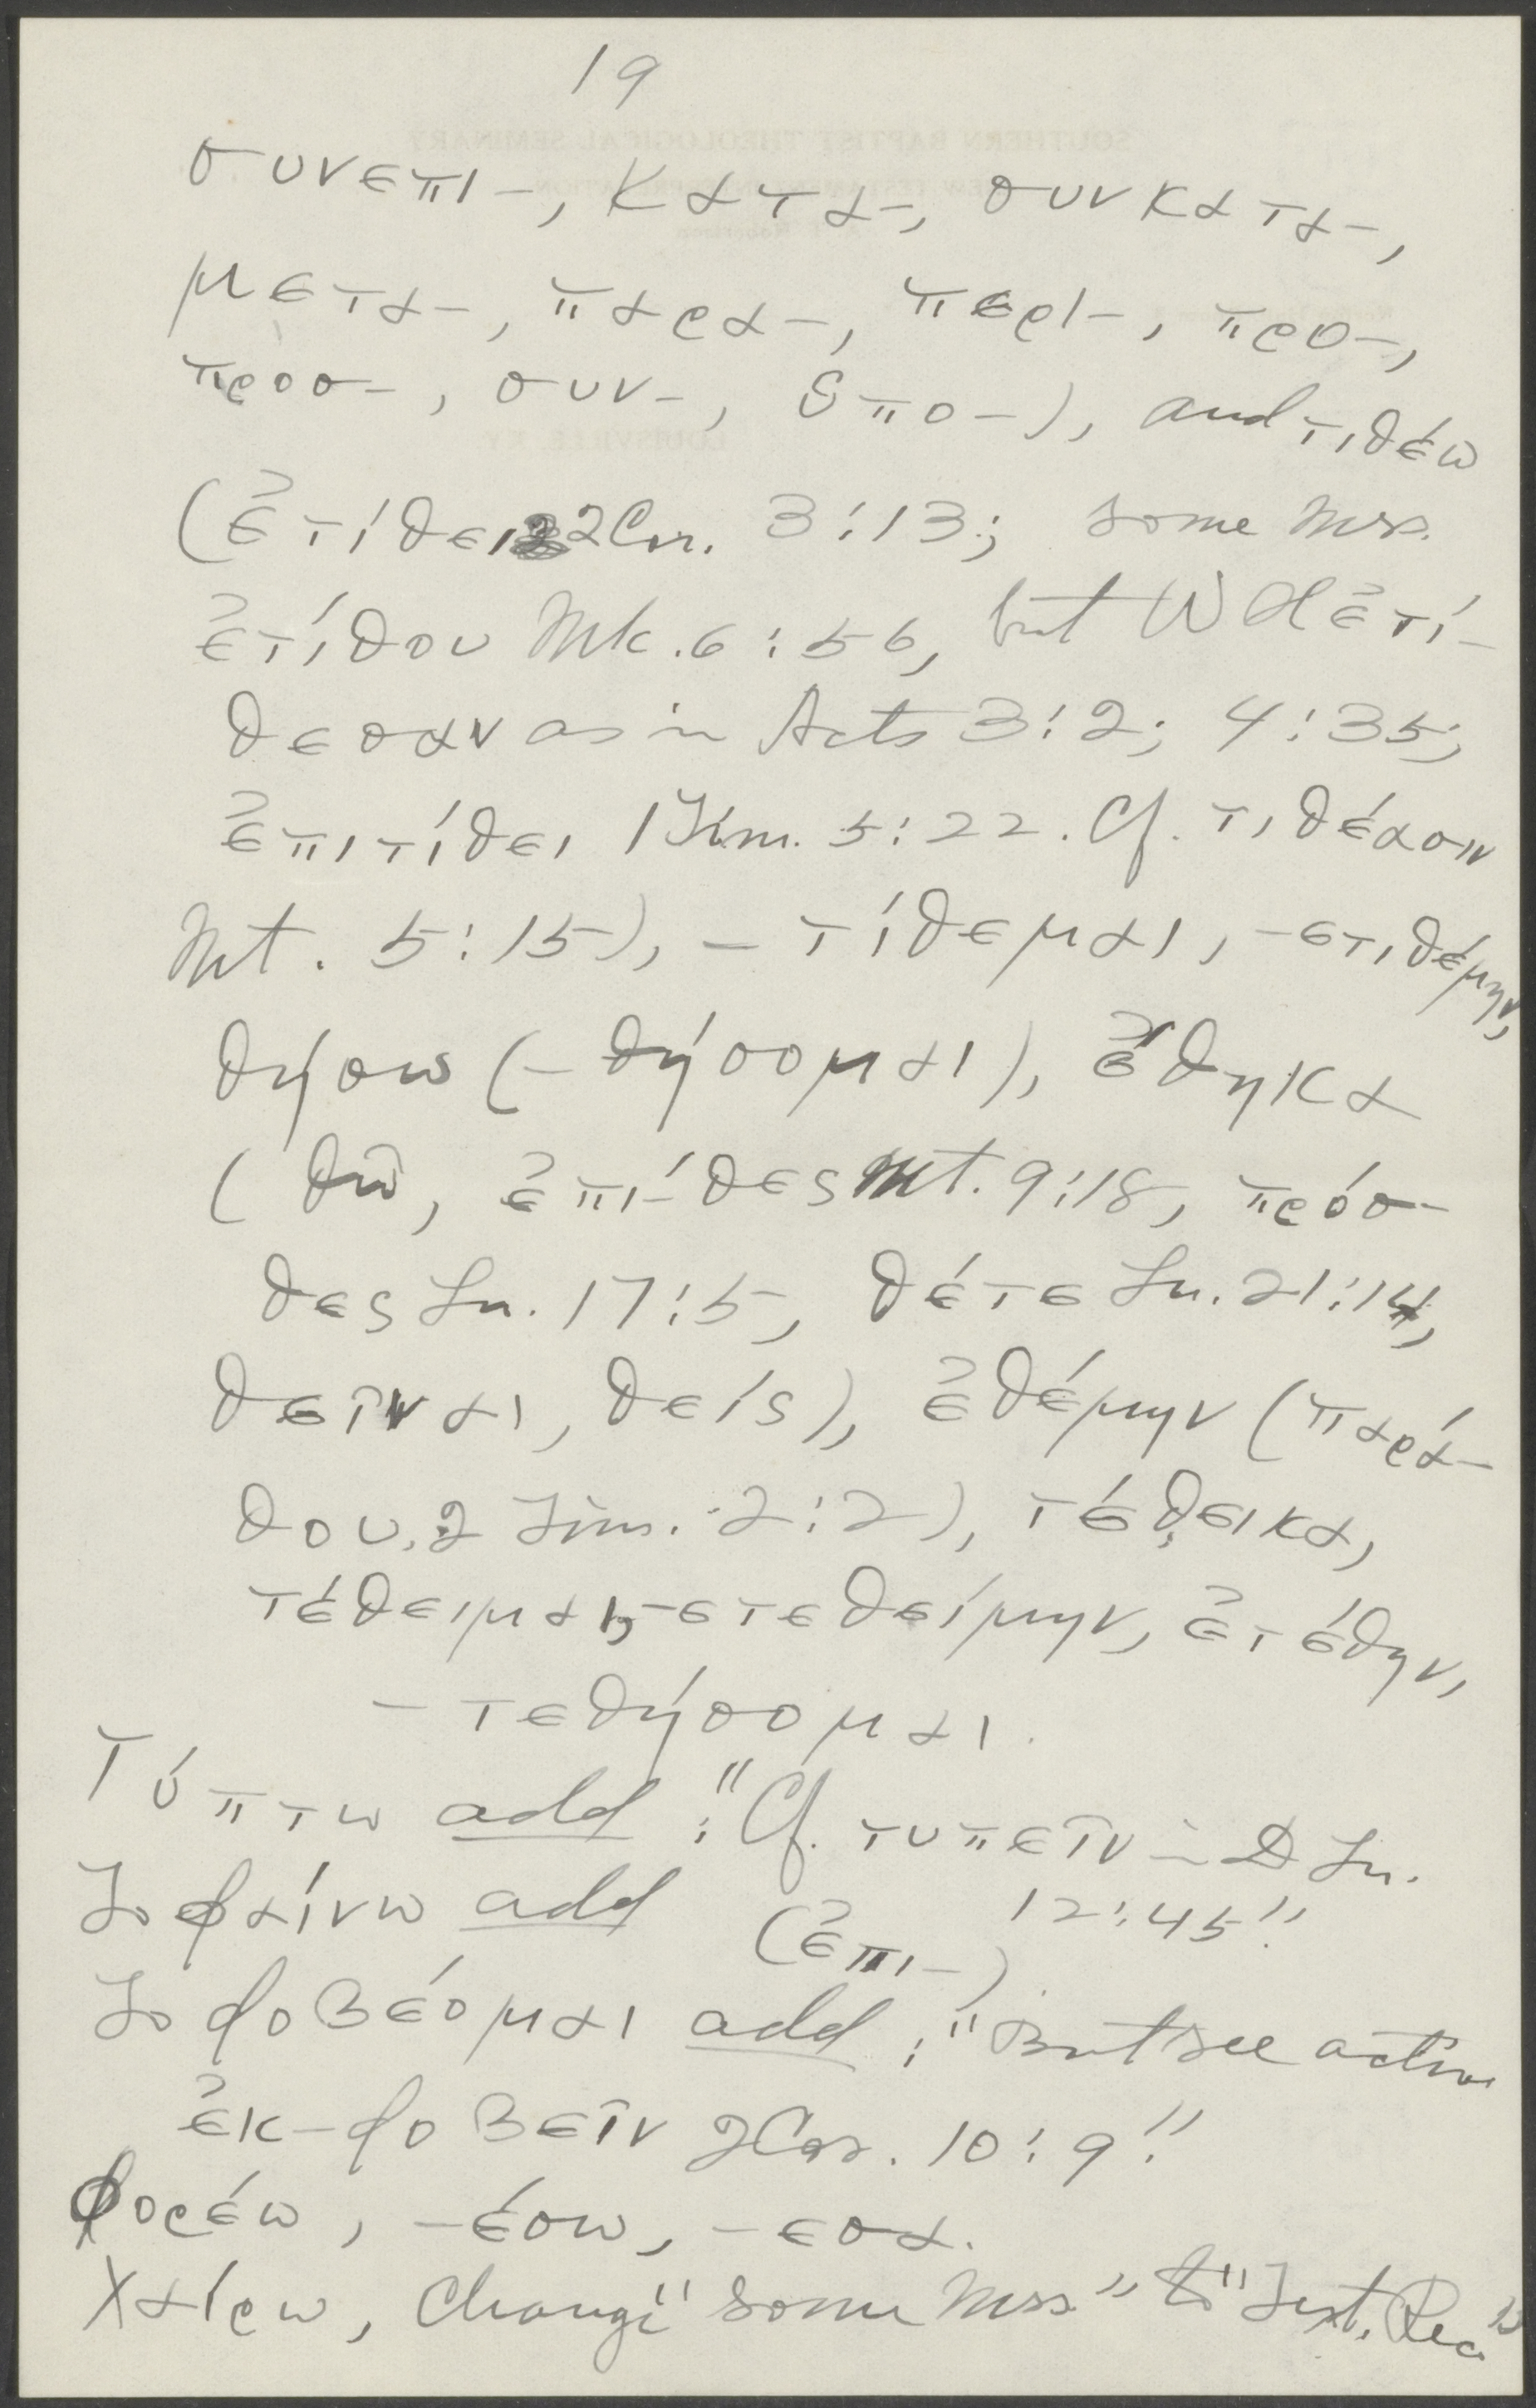 19
συνεπι-, κατα-, συνκατα-,
μετα-, παρα-, περι-, προ-,
προσ-, συν-, ὑπο-), and τιθέω
(ἐτίθει 2 Cor. 3:13; some Mss.
ἐτίθου Mk. 6:56, but W H ἐτί-
θεσαν as in Acts 3:2; 4:35;
ἐπιτίθει 1 Tim. 5:22. Cf. τιθέασιν
Mt. 5:15), -τίθεμαι, -ετιθέμην,
θήσω (-θήσομαι), ἔθηκα
(θῶ, ἐπίθες Mt. 9:18, πρόσ-
θες Lu. 17:5, θέτε Lu. 21:14,
θεῖναι, θείς), ἐθέμην (παρά-
θου, 2 Tim. 2:2), τέθεικα,
τέθειμαι, -ετεθείμην, ἐτέθην,
-τεθήσομαι.
Τύπτω add: "Cf. τυπεῖν in D Lu.
12:45".
To φαίνω add (ἐπι-).
To φοβέομαι add: "But see active
ἐκ-φοβεῖν 2 Cor. 10:9".
φορέω, -έσω, -εσα.
χαίρω, Change "some Mss" to "Text. Rec."